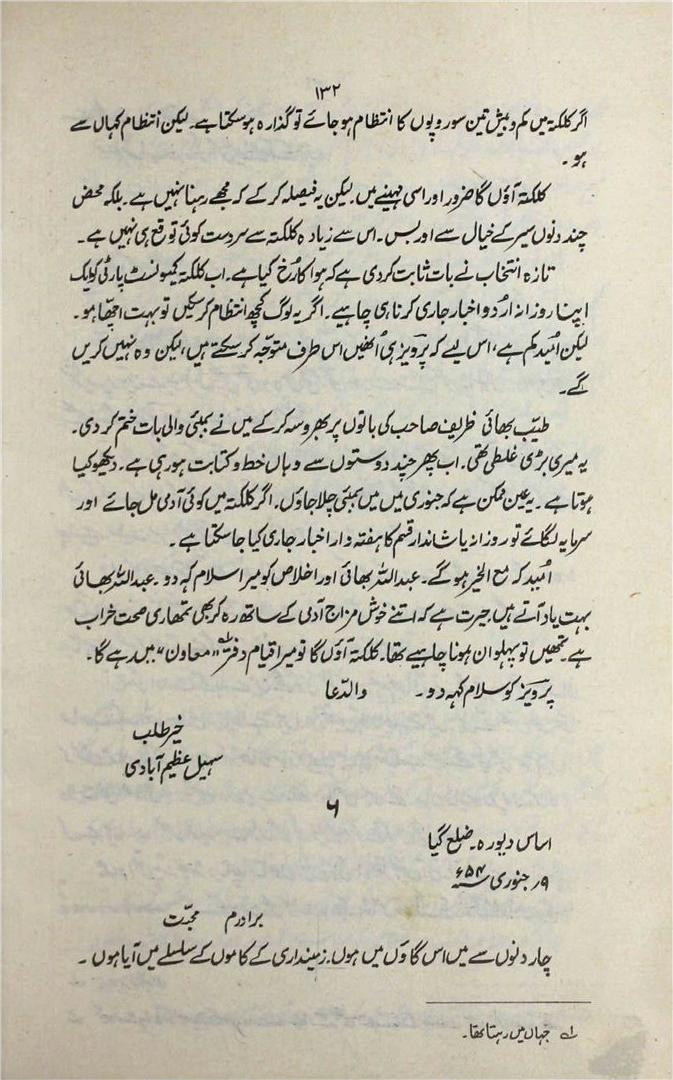 ۱۳۲
اگر کلکتہ میں کم و بیش تین سو روپوں کا انتظام ہو جائے تو گذارہ ہو سکتا ہے۔ لیکن انتظام کہاں سے
ہو۔
کلکتہ آؤں گا ضرور اور اسی مہینے میں۔ لیکن یہ فیصلہ کر کے کہ مجھے رہنا نہیں ہے۔ بلکہ محض
چند دنوں سیر کے خیال سے اور بس۔ اس سے زیادہ کلکتہ سے سردست کوئی توقع ہی نہیں ہے۔
تازہ انتخاب نے بات ثابت کر دی ہے کہ ہوا کا رُخ کیا ہے۔ اب کلکتہ کمیونسٹ پارٹی کو ایک
اپنا روزانہ اُردو اخبار جاری کرنا ہی چاہیے۔ اگر یہ لوگ کچھ انتظام کر سکیں تو بہت اچھا ہو۔
لیکن اُمید کم ہے، اس لیے کہ پرویز ہی اُنھیں اس طرف متوجّہ کر سکتے ہیں، لیکن وہ نہیں کریں
گے۔
طیّب بھائی ظریف صاحب کی باتوں پر بھروسہ کر کے میں نے بمبئی والی بات ختم کر دی۔
یہ میری بڑی غلطی تھی۔ اب پھر چند دوستوں سے وہاں خط و کتابت ہو رہی ہے۔ دیکھو کیا
ہوتا ہے۔ یہ عین ممکن ہے کہ جنوری میں میں بمبئی چلا جاؤں۔ اگر کلکتہ میں کوئی آدمی مل جائے اور
سرمایہ لگائے تو روزانہ یا شاندار قسم کا ہفتہ وار اخبار جاری کیا جا سکتا ہے۔
اُمید کہ مع الخیر ہو گے۔ عبداللہ بھائی اور اخلاص کو میرا سلام کہہ دو۔ عبداللہ بھائی
بہت یاد آتے ہیں۔ حیرت ہے کہ اتنے خوش مزاج آدمی کے ساتھ رہ کر بھی تمھاری صحت خراب
ہے۔ تمھیں تو پہلوان ہونا چاہیے تھا۔ کلکتہ آؤں گا تو میرا قیام دفتر ؎۱ ”معاون“ میں رہے گا۔
پرویز کو سلام کہہ دو۔ والدّعا
خیر طلب
سہیل عظیم آبادی
۶
اساس دیورہ۔ ضلع گیا
۹ر جنوری ۵۴ء
برادرم محبّت
چار دنوں سے میں اس گاؤں میں ہوں۔ زمینداری کے کاموں کے سلسلے میں آیا ہوں۔
؎۱ جہاں میں رہتا تھا۔